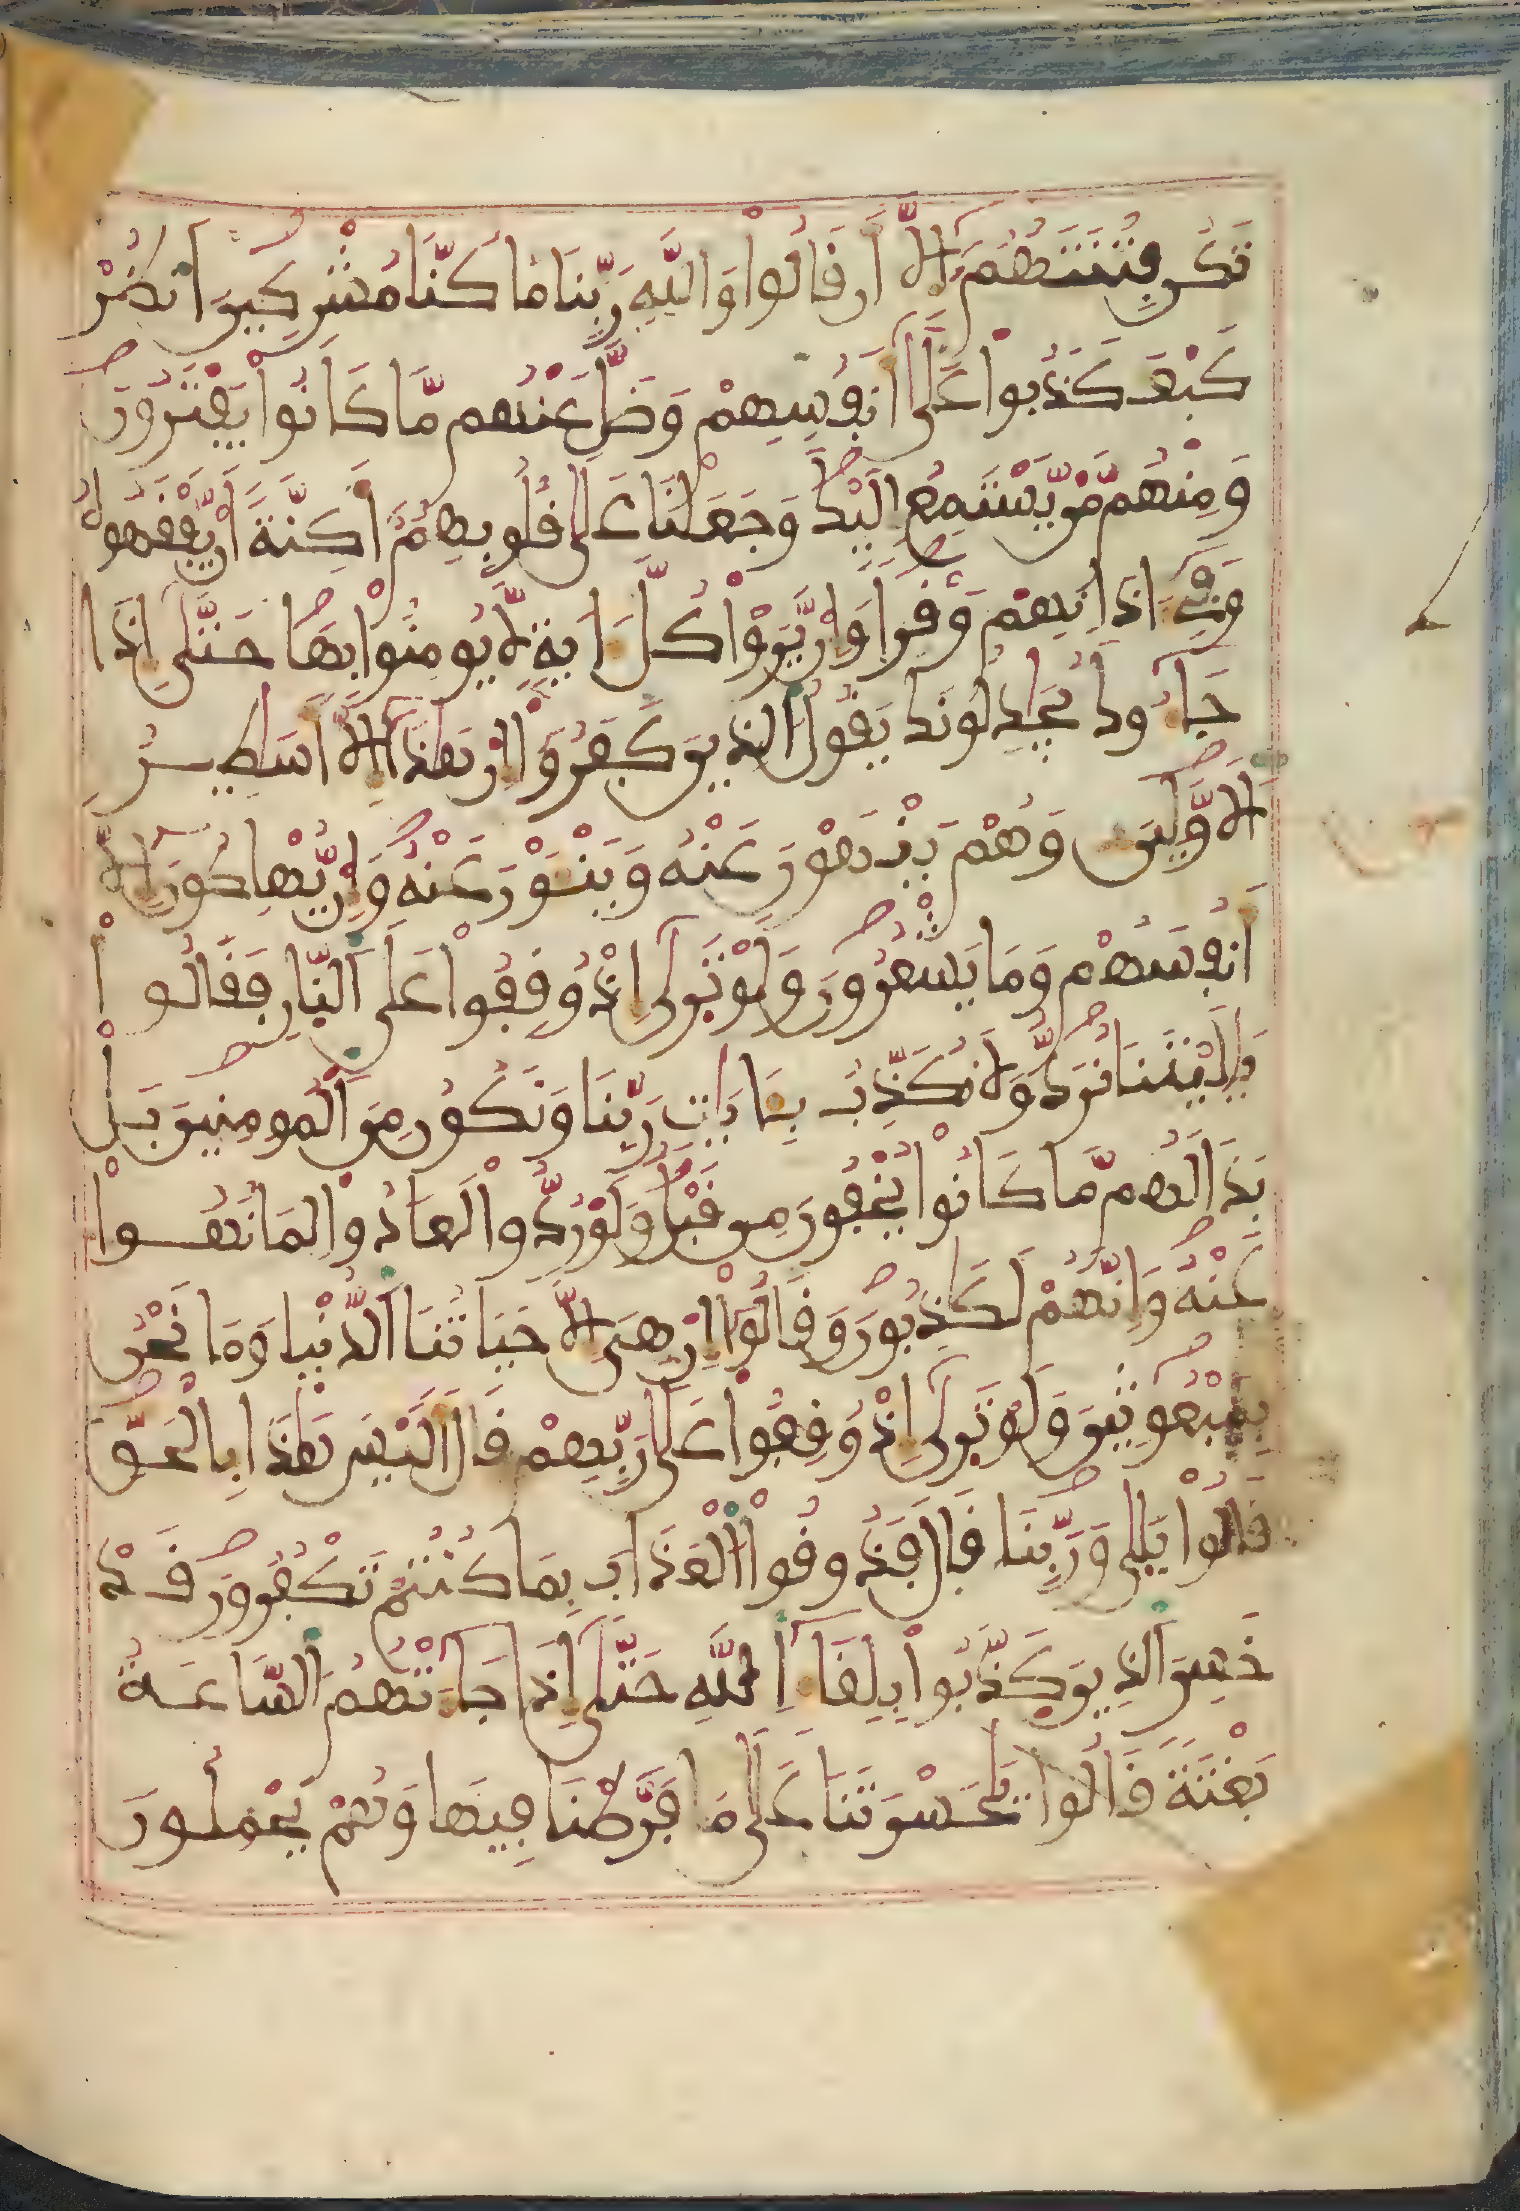 تَكُن فِتْنَتَهُمُۥٓ إِلَّآ أَن قَالُوا۟ وَاللَّهِ رَبِّنَا مَا كُنَّا مُشْرِكِينَ اَنظُرْ
كَيْفَ كَذَبُوا۟ عَلَىٰٓ أَنفُسِهِمْ وَضَلَّ عَنْهُم مَّا كَانُوا۟ يَفْتَرُونَ
وَمِنْهُم مَّنْ يَّسْتَمِعُ إِلَيْكَ وَجَعَلْنَا عَلَىٰ قُلُوبِهِمُۥٓ أَكِنَّةً أَنْ يَّفْقَهُوهُ
وَفِےٓ ءَاذَانِهِمْ وَقْرًا وَإِنْ يَّرَوْا۟ كُلَّ ءَايَةٍ لَّا يُومِنُوا۟ بِهَا حَتَّىٰٓ إِذَا
جَآءُوكَ يُجَٰدِلُونَكَ يَقُولُ الذِينَ كَفَرُوٓا۟ إِنْ هَٰذَآ إِلَّآ أَسَٰطِيرُ
الَاوَّلِينَ وَهُمْ يَنْهَوْنَ عَنْهُ وَيَنْـَٔوْنَ عَنْهُ وَإِنْ يُّهْلِكُونَ إِلَّآ
أَنفُسَهُمْ وَمَا يَشْعُرُونَ وَلَوْ تَرَىٰٓ إِذْ وُقِفُوا۟ عَلَى النَّارِ فَقَالُوا۟
يَٰلَيْتَنَا نُرَدُّ وَلَا نُكَذِّبُ بِـَٔايَٰتِ رَبِّنَا وَنَكُونُ مِنَ الْمُومِنِينَ بَلْ
بَدَا لَهُم مَّا كَانُوا۟ يُخْفُونَ مِن قَبْلُ وَلَوْ رُدُّوا۟ لَعَادُوا۟ لِمَا نُهُوا۟
عَنْهُ وَإِنَّهُمْ لَكَٰذِبُونَ وَقَالُوٓا۟ إِنْ هِىَ إِلَّا حَيَاتُنَا الدُّنْيَا وَمَا نَحْنُ
بِمَبْعُوثِينَ وَلَوْ تَرَىٰٓ إِذْ وُقِفُوا۟ عَلَىٰ رَبِّهِمْ قَالَ أَلَيْسَ هَٰذَا بِالْحَقِّ
قَالُوا۟ بَلَىٰ وَرَبِّنَا قَالَ فَذُوقُوا۟ الْعَذَابَ بِمَا كُنتُمْ تَكْفُرُونَ قَدْ
خَسِرَ الذِينَ كَذَّبُوا۟ بِلِقَآءِ اللَّهِ حَتَّىٰٓ إِذَا جَآءَتْهُمُ السَّاعَةُ
بَغْتَةً قَالُوا۟ يَٰحَسْرَتَنَا عَلَىٰ مَا فَرَّطْنَا فِيهَا وَهُمْ يَحْمِلُونَ